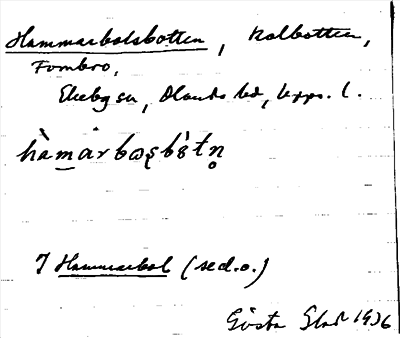 Hammarbolsbotten, kolbotten,
Fombro,
Ekeby sn, Olands hd, Upps. l.
hàmarbωs̨bòtn̥
I Hammarbol (se d. o.)
Gösta Glad 1936